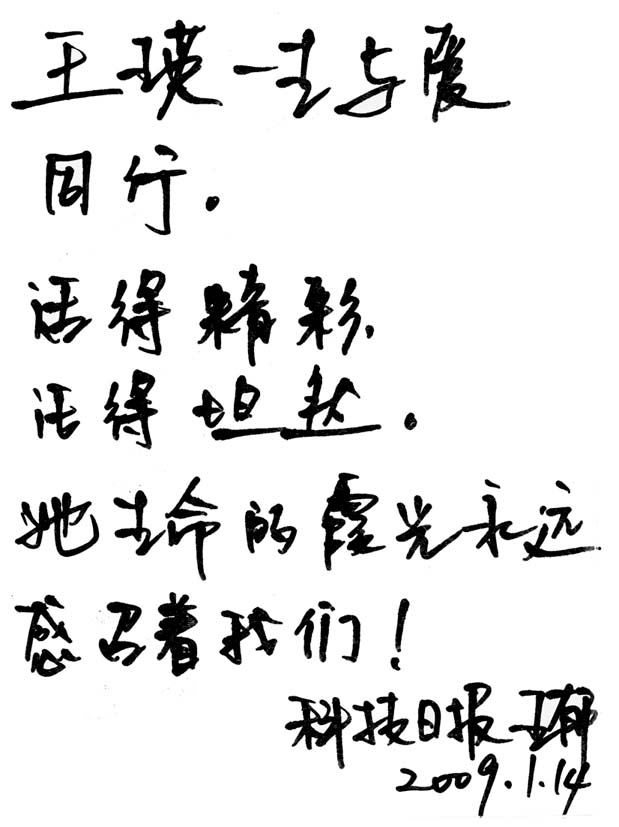 王瑛一生与爱
同行。
活得精彩,
活得坦然。
她生命的霞光永远
感召着我们!
科技日报 王郁
2009.1.14